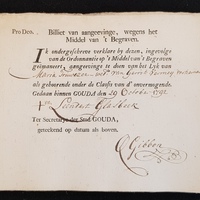 Pro Deo. Billiet van aangeevinge, wegens het
Middel van 't Begraven.
Ik ondergeschreve verklare by dezen, ingevolge
van de Ordonnantie op 't Middel van 't Begraven
geëmaneert, aangeevinge te doen van het Lyk van
Maria
als gehoorende onder de Classis van d' onvermogende.
Gedaan binnen GOUDA, den 29 Octobr 1791.
Ter Secretarye der Stad GOUDA,
geteekend op datum als boven.